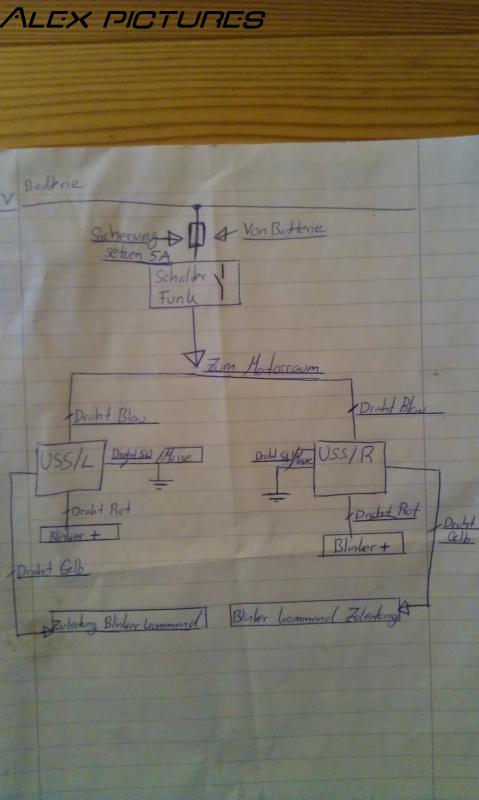 ALEX PICTURES
V
Batterie
Sicherung
setzen 5A
Von Batterie
Schalter
Funk
Zum Motorraum
Draht Blau
Draht Blau
USS/L
Draht SW/Masse
Draht SW/Masse
USS/R
Draht Rot
Draht Rot
Blinker +
Blinker +
Draht Gelb
Draht
Gelb
Zuleitung Blinker kommend
Blinker kommend Zuleitung